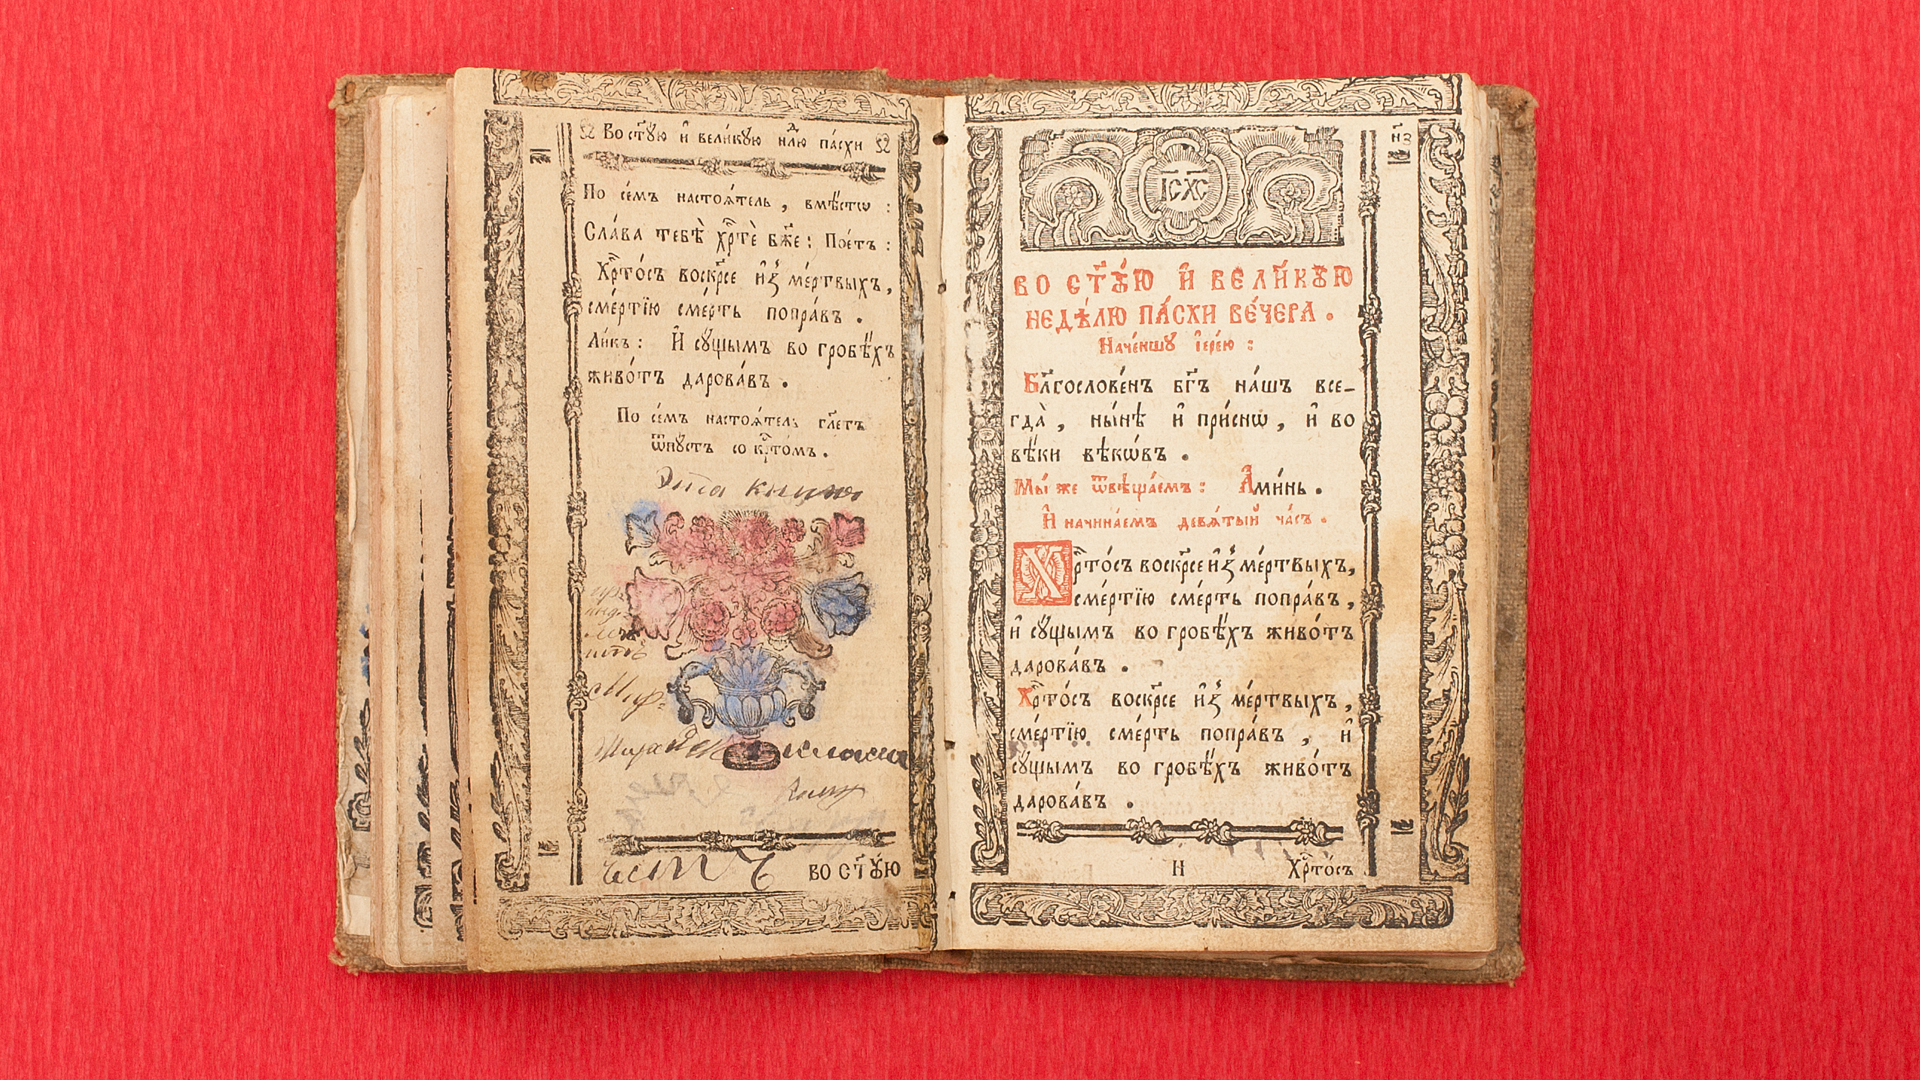 Во ст҃ꙋю и҆ вели́кꙋю нд҃лю па́схи
По се́мъ настоѧ́тель , вмѣ́стѡ :
Сла́ва тебѣ̀ хрⷭ҇тѐ бж҃е : Пое́тъ :
Хрⷭ҇то́съ воскрⷭ҇се и҆з̾ ме́ртвыхъ ,
сме́ртїю сме́рть попра́въ .
Ли́къ : И҆ сꙋ́щымъ во гробѣ́хъ
живо́тъ дарова́въ .
По се́мъ настоѧ́тель гл҃етъ
ѿпꙋстъ со крⷭ҇то́мъ .
Эта книга
есть
во ст҃ꙋ́ю
н҃з
І҃С Х҃С
ВО СТ҃Ꙋ́Ю И҆ ВЕЛИ́КꙊЮ
НЕДѢ́ЛЮ ПА́СХИ ВЕ́ЧЕРА .
Наче́ншꙋ і҆ере́ю :
Бл҃гослове́нъ бг҃ъ на́шъ все-
гда̀ , ны́нѣ и҆ при́снѡ , и҆ во
вѣ́ки вѣкѡ́въ .
Мы́ же ѿвѣща́емъ : А҆ми́нь .
И҆ начина́емъ девѧ́тый ча́съ .
Хрⷭ҇то́съ воскрⷭ҇се и҆з̾ ме́ртвыхъ ,
сме́ртїю сме́рть попра́въ ,
и҆ сꙋ́щымъ во гробѣ́хъ живо́тъ
дарова́въ .
Хрⷭ҇то́съ воскрⷭ҇се и҆з̾ ме́ртвыхъ ,
сме́ртїю сме́рть попра́въ , и҆
сꙋ́щымъ во гробѣ́хъ живо́тъ
дарова́въ .
н Хрⷭ҇то́съ